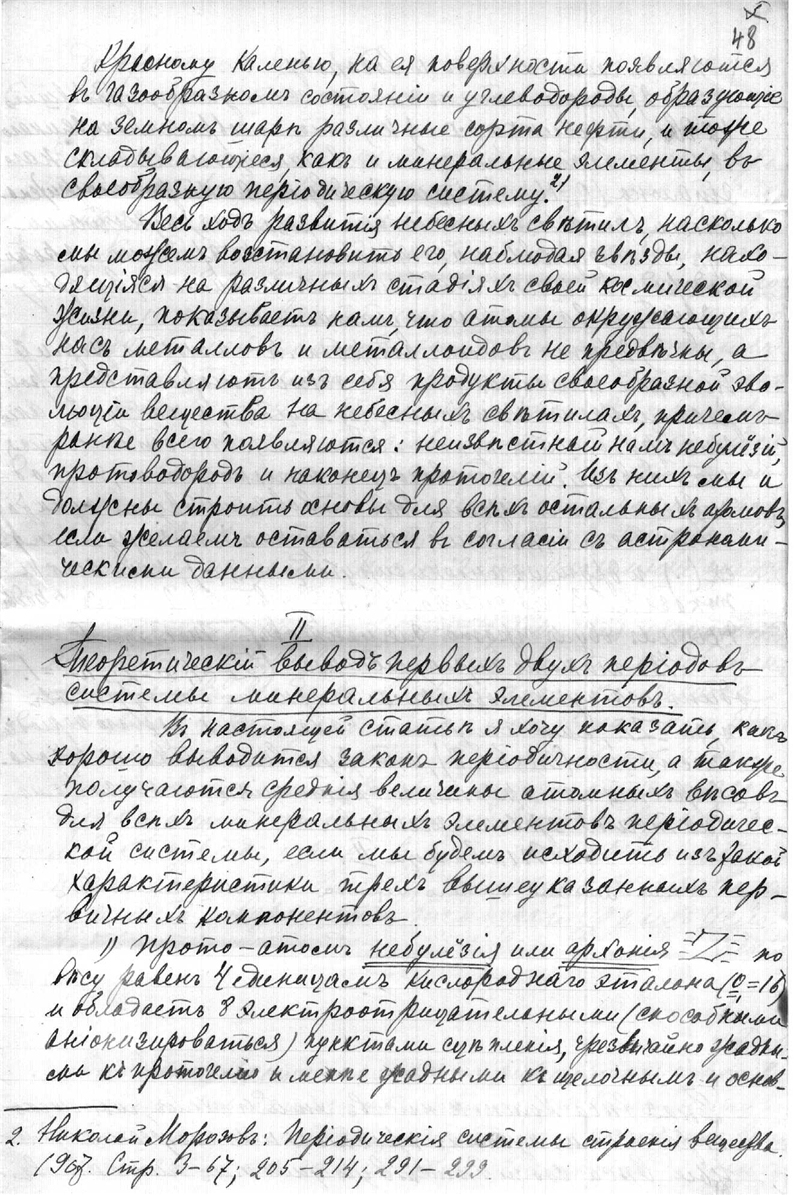 48
Красному каленью, на ея поверхности появляются
въ газообразномъ состоянiи и углеводороды, образующiе
на земномъ шарѣ различные сорта нефти, и тоже
складывающiеся, какъ и минеральные элементы, въ
своеобразную перiодическую систему.2)
Весь ходъ развитiя небесныхъ свѣтилъ, насколько
мы можемъ возстановить его, наблюдая звѣзды, нахо-
дящiяся на различныхъ стадiяхъ своей космической
жизни, показываетъ намъ, что атомы окружающихъ
насъ металловъ и металлоидовъ не предвѣчны, а
представляютъ изъ себя продукты своеобразной эво-
люцiи вещества на небесныхъ свѣтилахъ, причемъ
ранѣе всего появляются: неизвѣстный намъ небулёзiй,
протоводородъ и наконецъ протогелiй. Изъ нихъ мы и
должны строить основы для всѣхъ остальныхъ атомовъ,
если желаемъ оставаться въ согласiи съ астрономи-
ческими данными.
II
Теоретическiй выводъ первыхъ двухъ перiодовъ
системы минеральныхъ элементовъ.
Въ настоящей статьѣ я хочу показать, какъ
хорошо выводится законъ перiодичности, а также
получаются среднiя величины атомныхъ вѣсовъ
для всѣхъ минеральныхъ элементовъ перiодичес-
кой системы, если мы будемъ исходить изъ такой
характеристики трехъ вышеуказанныхъ пер-
вичныхъ компонентовъ.
1) Прото-атомъ небулёзiя или архонiя Z по
вѣсу равенъ 4 единицамъ кислороднаго эталона (O=16)
и обладаетъ 8 электроотрицательными (способными
анiонизироваться) пунктами сцѣпленiя, чрезвычайно жадны-
ми къ протогелiю и менѣе жадными къ щелочнымъ и основ-
2. Николай Морозовъ: Перiодическiя системы строенiя вещества.
1907. Стр. 3-67; 205-214; 291-299